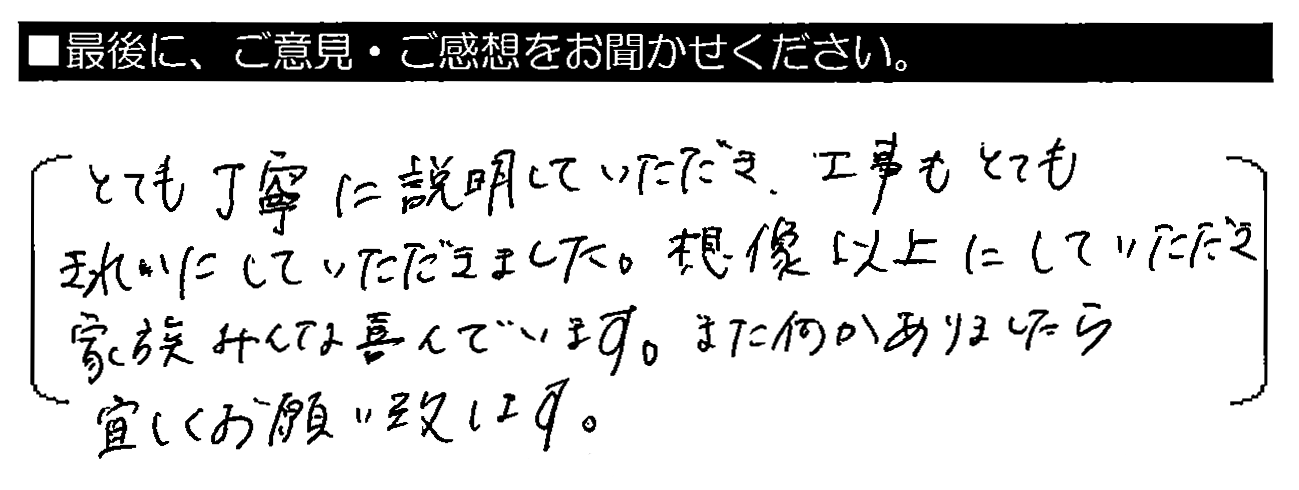 ■最後に、ご意見・ご感想をお聞かせください。
とても丁寧に説明していただき、工事もとても
きれいにしていただきました。想像以上にしていただき
家族みんな喜んでいます。また何かありましたら
宜しくお願い致します。